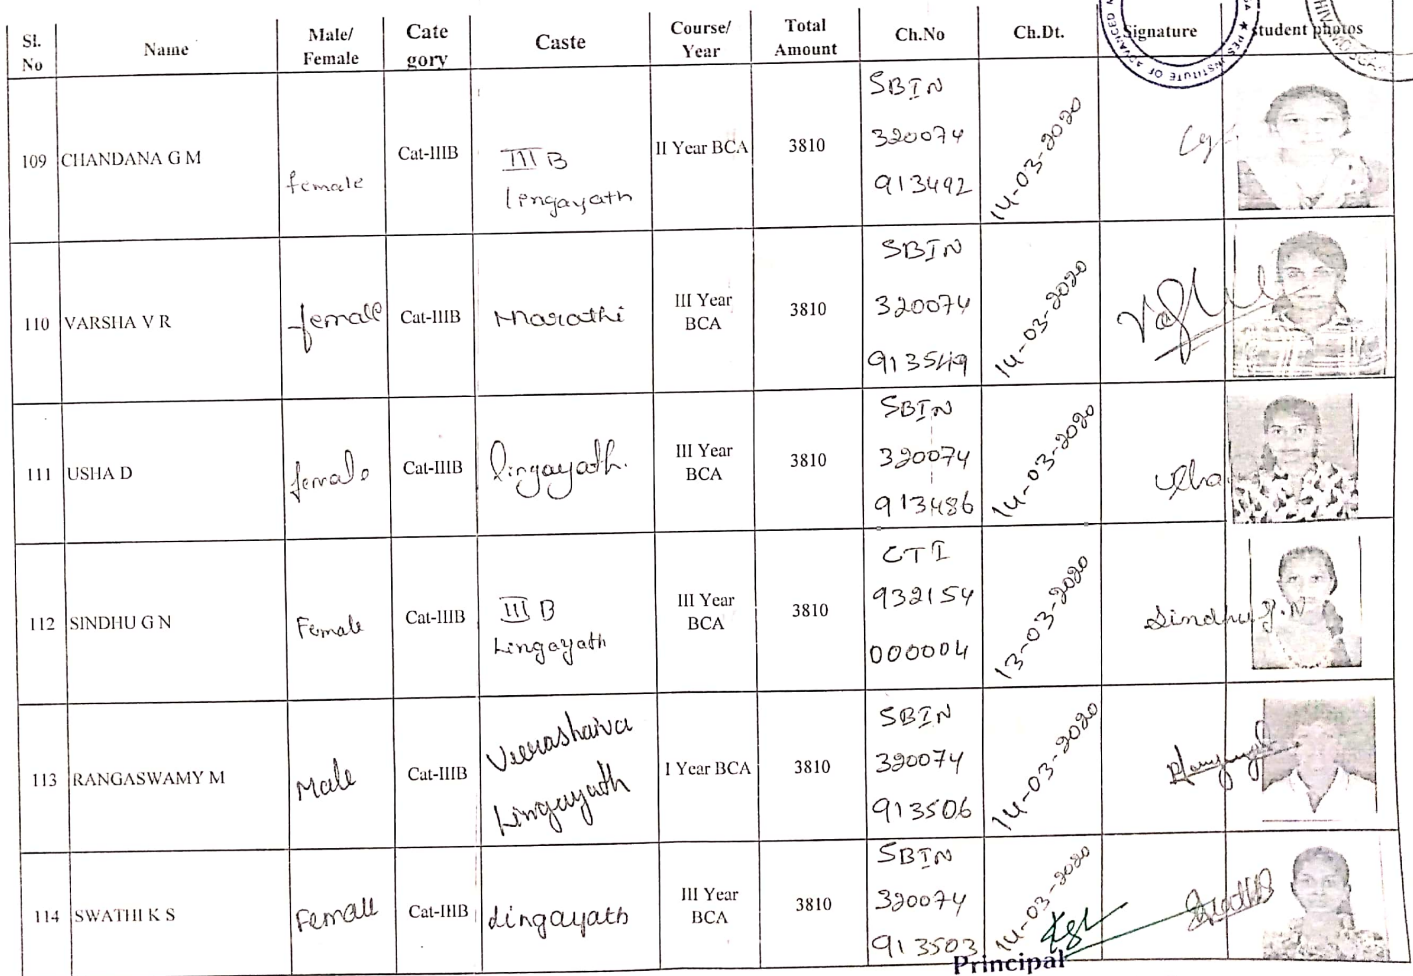 Sl. No Name Male/ Female Cate gory Caste Course/ Year Total Amount Ch.No Ch.Dt. Signature Student photos
109 CHANDANA G M female Cat-IIIB III B Lingayath II Year BCA 3810 SBIN 320074 913492 14-03-2020
110 VARSHA V R female Cat-IIIB Marathi III Year BCA 3810 SBIN 320074 913549 14-03-2020
111 USHA D female Cat-IIIB lingayath. III Year BCA 3810 SBIN 320074 913486 14-03-2020 Usha
112 SINDHU G N Female Cat-IIIB III B Lingayath III Year BCA 3810 CTI 932154 000004 13-03-2020 Sindhu G.N
113 RANGASWAMY M Male Cat-IIIB Veerashaiva Lingayath I Year BCA 3810 SBIN 320074 913506 14-03-2020
114 SWATHI K S Female Cat-IIIB Lingayath III Year BCA 3810 SBIN 320074 913503 14-03-2020
Principal